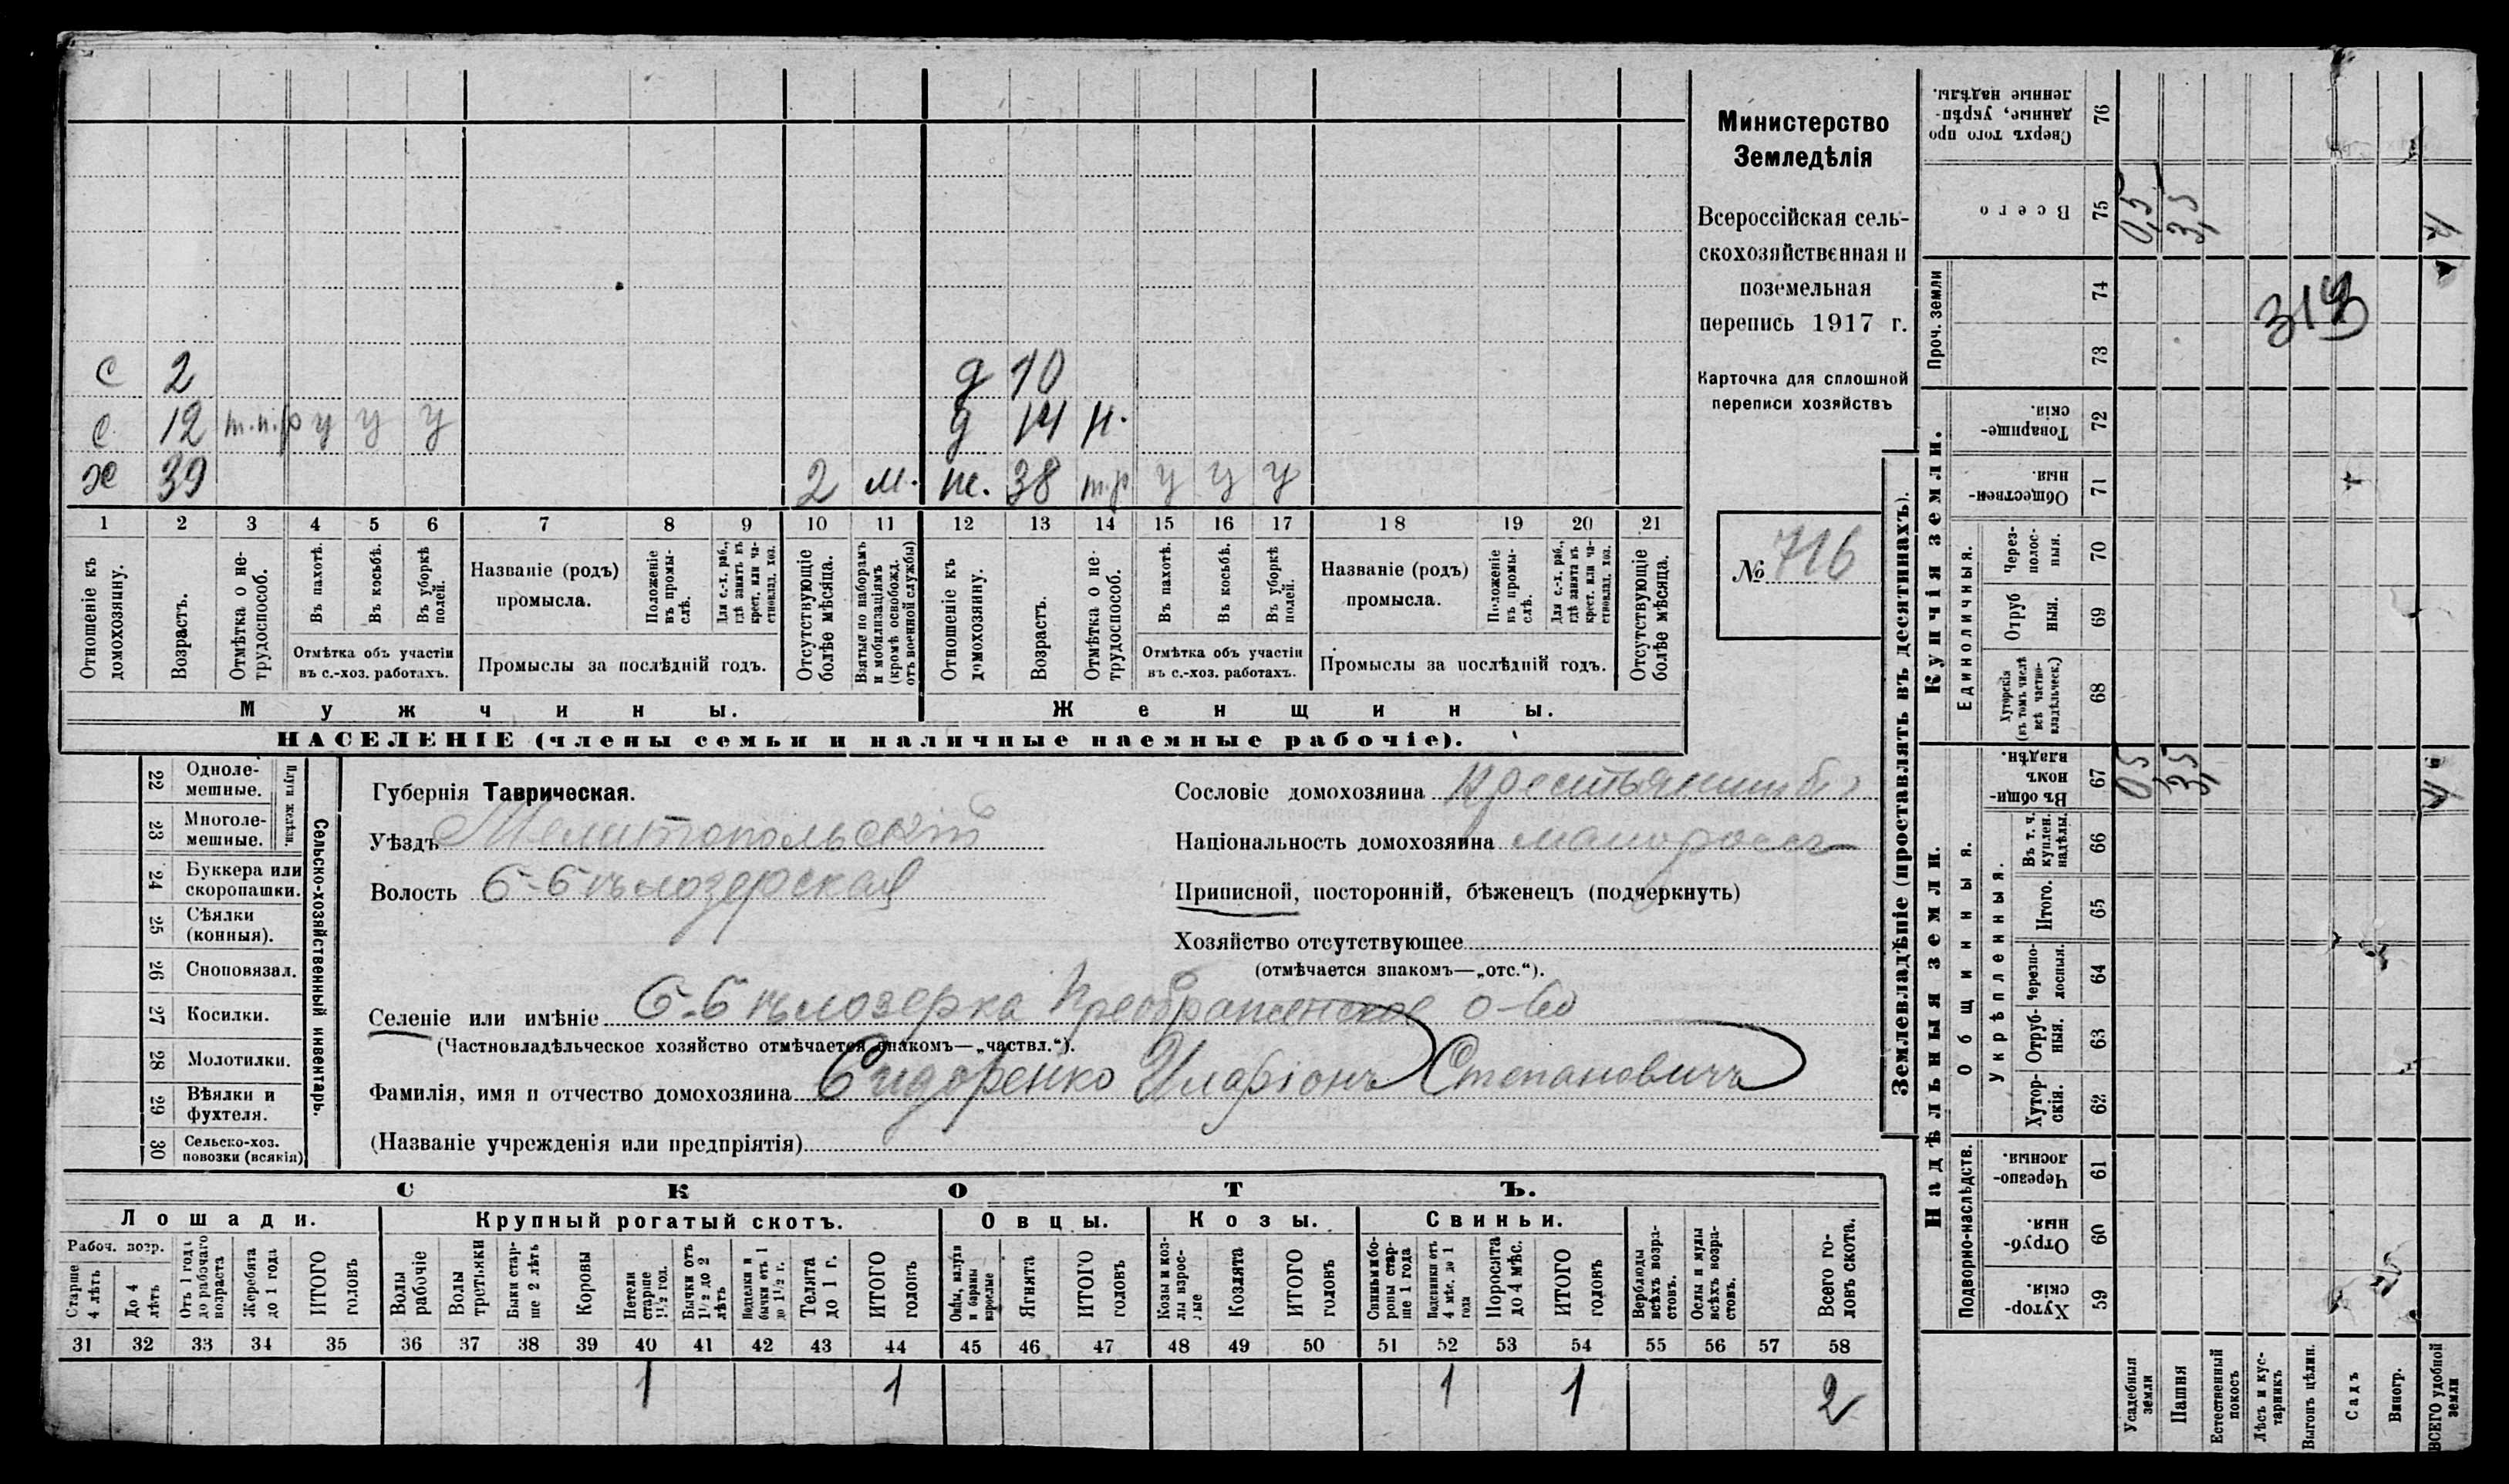 Министерство
Земледѣлія
Всероссійская сель-
скохозяйственная и
поземельная
перепись 1917 г.
Карточка для сплошной
переписи хозяйствъ
№ 716
с 2 д 10
с 12 т.п.р у у у д 14 н.
х 39 2 м. ж. 38 т.р у у у
1 2 3 4 5 6 7 8 9 10 11 12 13 14 15 16 17 18 19 20 21
Отношеніе къ домохозяину.
Возрастъ.
Отмѣтка о не-трудоспособ.
Въ пахотѣ.
Въ косьбѣ.
Въ уборкѣ полей.
Отмѣтка объ участіи
въ с.-хоз. работахъ.
Названіе (родъ)
промысла.
Положеніе въ промы-слѣ.
Для с.-х. раб., гдѣ занятъ въ крест. или ча-стновлад. хоз.
Промыслы за послѣдній годъ.
Отсутствующіе болѣе мѣсяца.
Взятые по наборамъ и мобилизаціямъ (кромѣ освобожд. отъ военной службы)
Отношеніе къ домохозяину.
Возрастъ.
Отмѣтка о не-трудоспособ.
Въ пахотѣ.
Въ косьбѣ.
Въ уборкѣ полей.
Отмѣтка объ участіи
въ с.-хоз. работахъ.
Названіе (родъ)
промысла.
Положеніе въ промы-слѣ.
Для с.-х. раб., гдѣ занята въ крест. или ча-стновлад. хоз.
Промыслы за послѣдній годъ.
Отсутствующіе болѣе мѣсяца.
Мужчины. Женщины.
НАСЕЛЕНІЕ (члены семьи и наличные наемные рабочіе).
Сельско-хозяйственный инвентарь.
Плуги желѣзн.
22 Одноле-мешные.
23 Многоле-мешные.
24 Буккера или скоропашки.
25 Сѣялки (конныя).
26 Сноповязал.
27 Косилки.
28 Молотилки.
29 Вѣялки и фухтеля.
30 Сельско-хоз. повозки (всякія)
Губернія Таврическая.
Уѣздъ Мелитопольскій
Волость Б-Бѣлозерская
Сословіе домохозяина
Національность домохозяина малоросс
Приписной, посторонній, бѣженецъ (подчеркнуть)
Хозяйство отсутствующее
(отмѣчается знакомъ—„отс.“).
Селеніе или имѣніе Б-Бѣлозерка Преображенское о-во
(Частновладѣльческое хозяйство отмѣчается знакомъ—„частвл.“).
Фамилія, имя и отчество домохозяина Сидоренко Иларіонъ Степановичъ
(Названіе учрежденія или предпріятія)
СКОТЪ.
Лошади. Крупный рогатый скотъ. Овцы. Козы. Свиньи.
Рабоч. возр.
Старше 4 лѣтъ
До 4 лѣтъ
Отъ 1 года до рабочаго возраста
Жеребята до 1 года
ИТОГО головъ
Волы рабочіе
Волы третьяки
Быки стар-ше 2 лѣтъ
Коровы
Нетели старше 1½ год.
Бычки отъ 1½ до 2 лѣтъ
Телята до 1 г.
ИТОГО головъ
Овцы, валухи и бараны взрослые
Ягнята
ИТОГО головъ
Козы и коз-лы взрос-лые
Козлята
ИТОГО головъ
Свиньи и бо-ровы стар-ше 1 года
Подсвинки отъ 4 мѣс. до 1 года
Поросята до 4 мѣс.
ИТОГО головъ
Верблюды всѣхъ возра-стовъ.
Ослы и мулы всѣхъ возра-стовъ.
Всего го-ловъ скота.
31 32 33 34 35 36 37 38 39 40 41 42 43 44 45 46 47 48 49 50 51 52 53 54 55 56 57 58
1 1 1 1 2
Землевладѣніе (проставлять въ десятинахъ).
Надѣльныя земли.
Купчія земли.
Проч. земли
Сверхъ того про
данные, укрѣп-
ленные надѣлы. 76
Всего 75 0,5 3,5 4
74
73
Товарище-скія. 72
Обществен-ныя. 71
Единоличныя.
Через-полос-ныя. 70
Отруб ныя. 69
Хуторскія (въ томъ числѣ всѣ частно-владѣльческ.) 68
Общинныя.
Въ общи-номъ владѣн. 67 0,5 3,5 4
Укрѣпленныя.
Въ т. ч. куплен. надѣлы. 66
Итого. 65
Черезпо-лосныя. 64
Отруб-ныя. 63
Хутор-скія. 62
Подворно-наслѣдств.
Черезпо-лосныя. 61
Отруб-ныя. 60
Хутор-скія. 59
Усадебныя земли
Пашня
Естественный покосъ
Лѣсъ и кус-тарникъ
Выгонъ цѣлин.
Садъ
Виногр.
ВСЕГО удобной земли